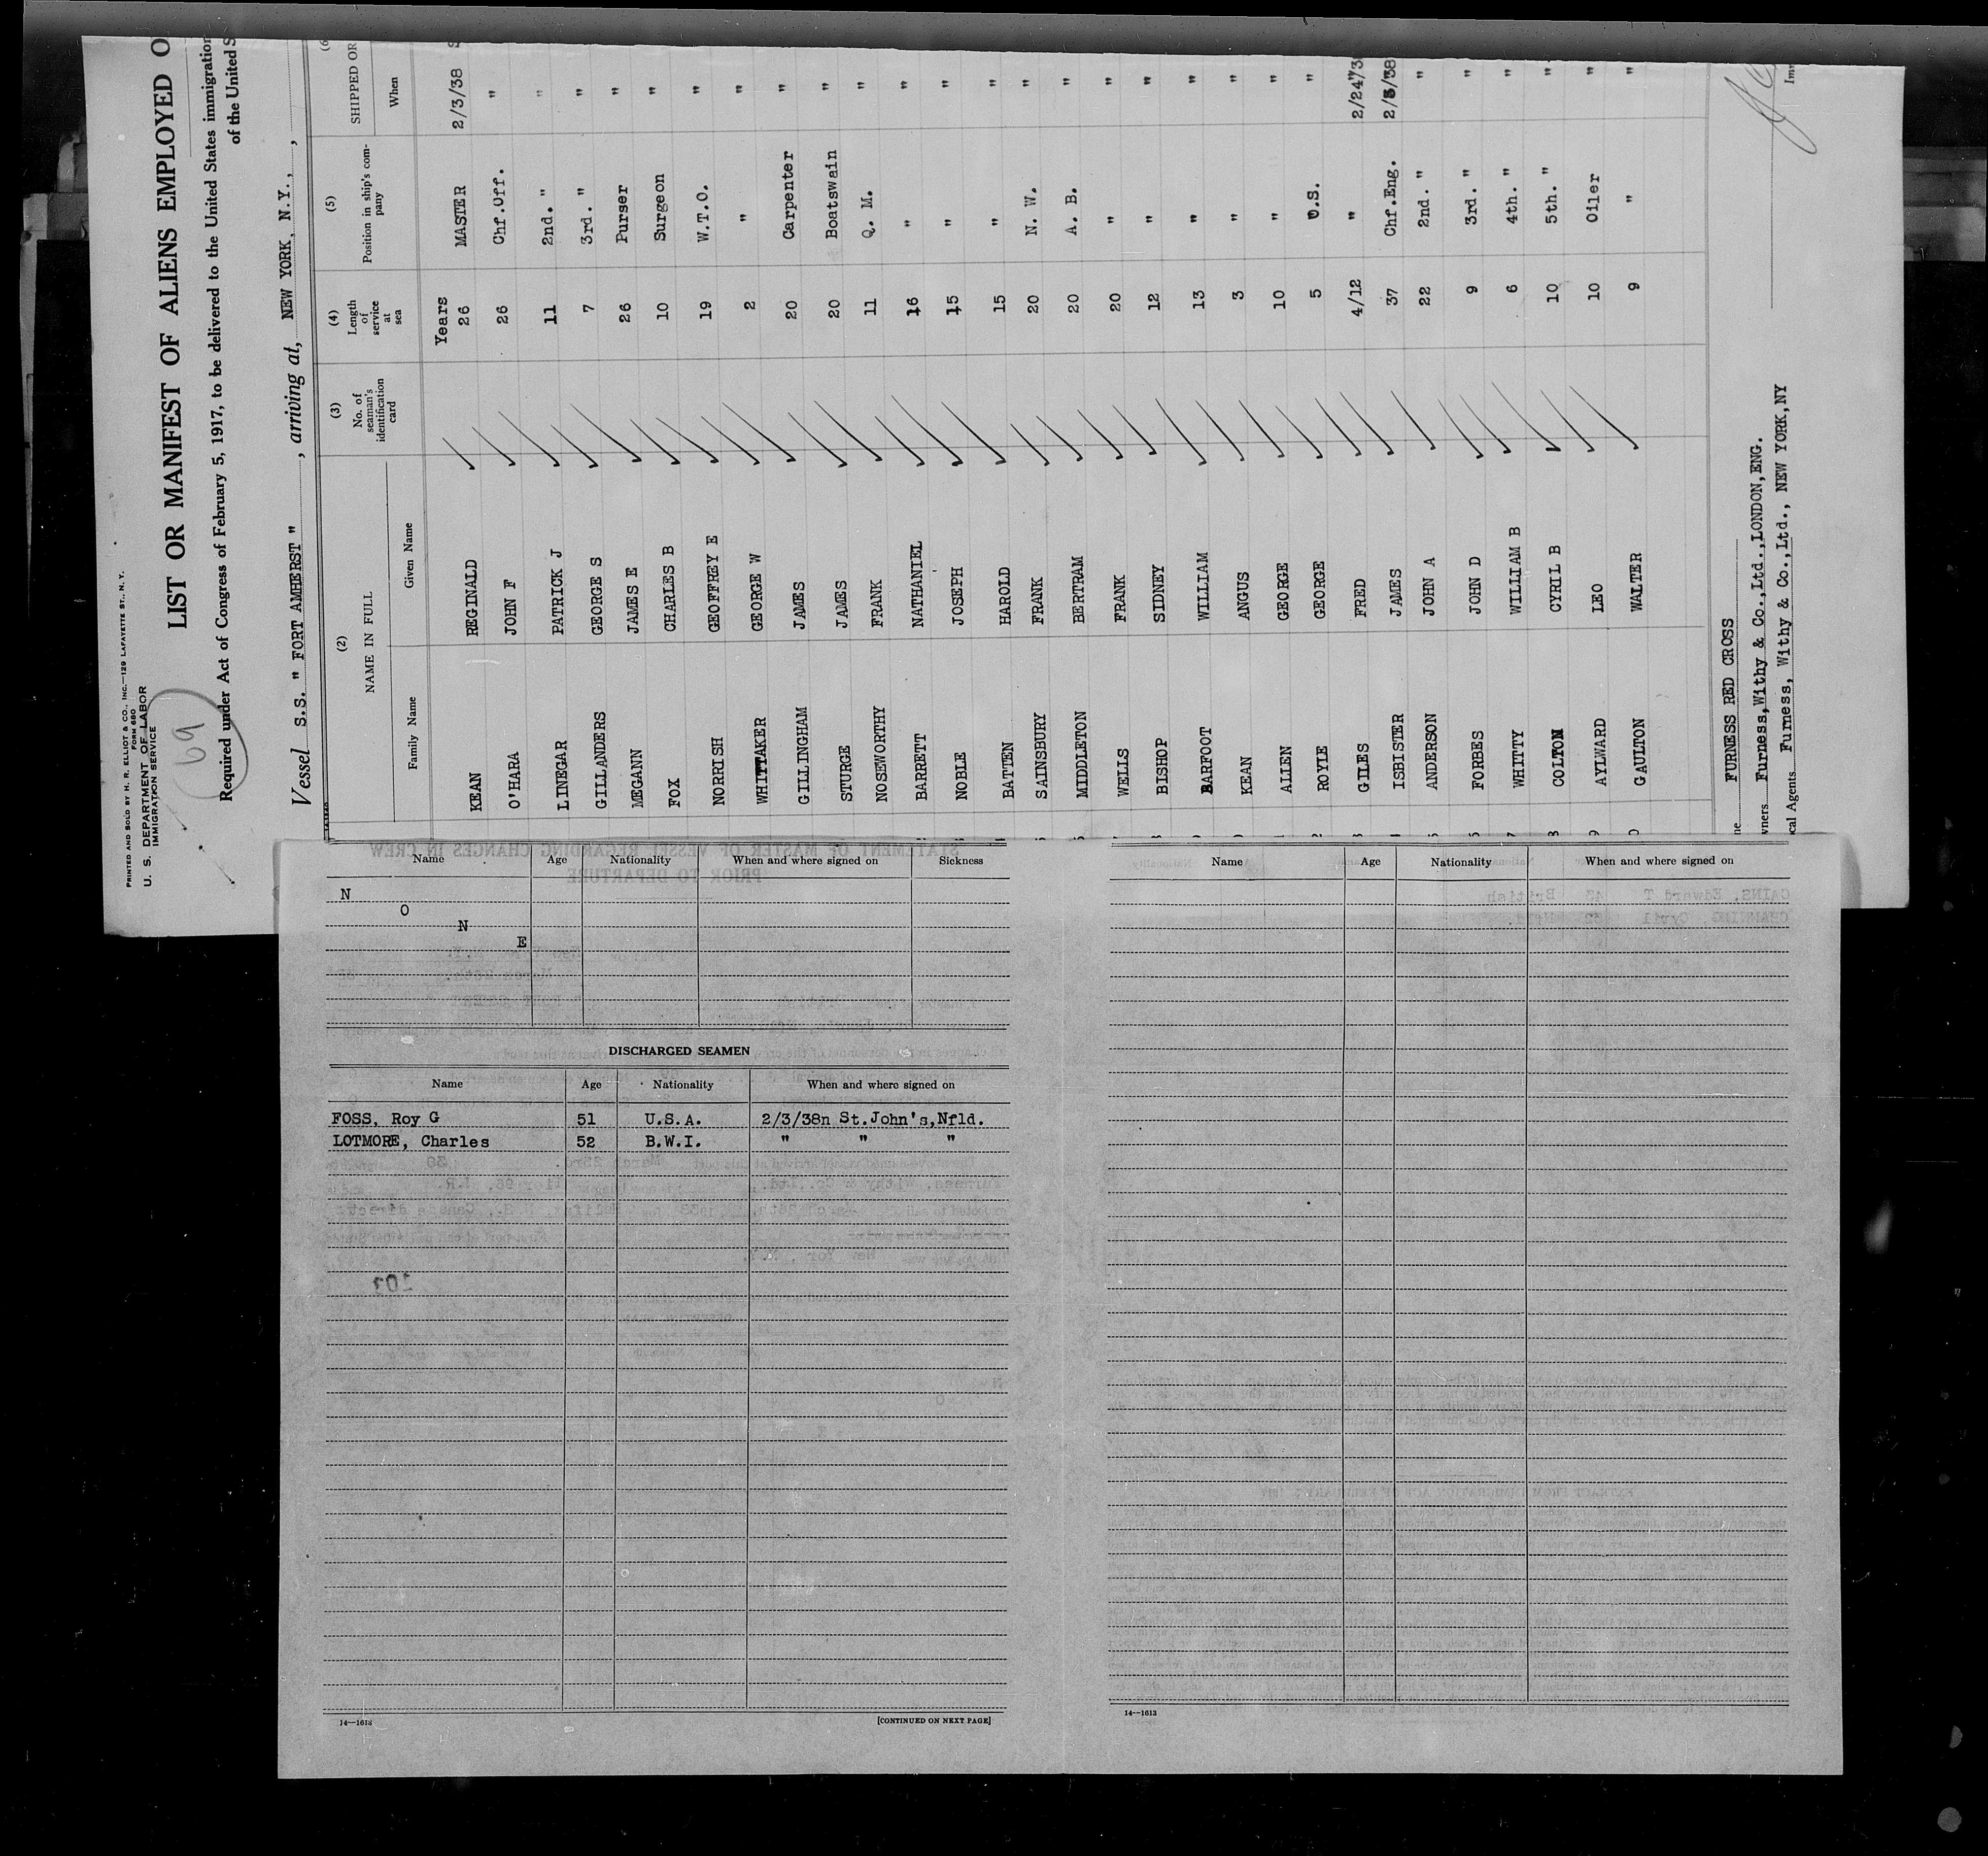 PRINTED AND SOLD BY H. R. ELLIOT & CO., INC.—129 LAFAYETTE ST., N. Y.
FORM 680
U. S. DEPARTMENT OF LABOR
IMMIGRATION SERVICE
69
LIST OR MANIFEST OF ALIENS EMPLOYED O
Required under Act of Congress of February 5, 1917, to be delivered to the United States immigration
of the United S
Vessel S.S. " FORT AMHERST " , arriving at, NEW YORK, N.Y., ,
(2) (3) (4) (5) (6
NAME IN FULL No. of seaman's identification card Length of service at sea Position in ship's company SHIPPED OR
Family Name Given Name When
Years
KEAN REGINALD 26 MASTER 2/3/38 S
O'HARA JOHN F 26 Chr.Off. "
LINEGAR PATRICK J 11 2nd. " "
GILLANDERS GEORGE S 7 3rd. " "
MEGANN JAMES E 26 Purser "
FOX CHARLES B 10 Surgeon "
NORRISH GEOFFREY E 19 W.T.O. "
WHITTAKER GEORGE W 2 " "
GILLINGHAM JAMES 20 Carpenter "
STURGE JAMES 20 Boatswain "
NOSEWORTHY FRANK 11 Q. M. "
BARRETT NATHANIEL 16 " "
NOBLE JOSEPH 15 " "
BATTEN HAROLD 15 " "
SAINSBURY FRANK 20 N. W. "
MIDDLETON BERTRAM 20 A. B. "
WELLS FRANK 20 " "
BISHOP SIDNEY 12 " "
BARFOOT WILLIAM 13 " "
KEAN ANGUS 3 " "
ALLEN GEORGE 10 " "
ROYLE GEORGE 5 O.S. "
GILES FRED 4/12 " 2/24/3
ISBISTER JAMES 37 Chf.Eng. 2/3/38
ANDERSON JOHN A 22 2nd. " "
FORBES JOHN D 9 3rd. " "
WHITTY WILLIAM B 6 4th. " "
COLTON CYRIL B 10 5th. " "
AYLWARD LEO 10 Oiler "
GAULTON WALTER 9 " "
ne FURNESS RED CROSS
wners Furness,Withy & Co.,Ltd.,LONDON,ENG.
cal Agents Furness, Withy & Co.,Ltd., NEW YORK,NY
Imm
Name Age Nationality When and where signed on Sickness
N
O
N
E
DISCHARGED SEAMEN
Name Age Nationality When and where signed on
FOSS, Roy G 51 U.S.A. 2/3/38n St.John's,Nfld.
LOTMORE, Charles 52 B.W.I. " " "
14—1613 [CONTINUED ON NEXT PAGE]
Name Age Nationality When and where signed on
14—1613